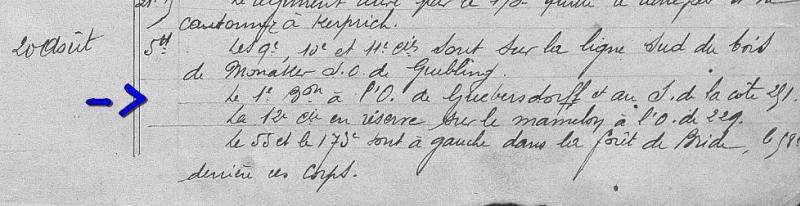 le régiment par le 173e quitte et va
cantonner à Kerprich.
20 Août 5h Les 9e, 10e et 11e Cies sont sur la ligne Sud du bois
de Monacker S.O. de Guebling.
Le 1er Bon à l'O. de Guebersdorff et au S. de la côte 251.
La 12e Cie en réserve sur le mamelon à l'O. de 229.
Le 55 et le 173e sont à gauche dans la forêt de Bride, le 58e
derrière ces Corps.